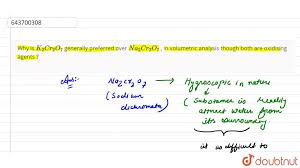 643700308
Why is K₂Cr₂O₇ generally preferred over Na₂Cr₂O₇, in volumetric analysis though both are oxidising
agents ?
Ans:
Na₂Cr₂O₇ → Hygroscopic in nature
(Sodium dichromate)
(Substance is readily
attract water from
its surrounding
it is difficult to
doubtnut